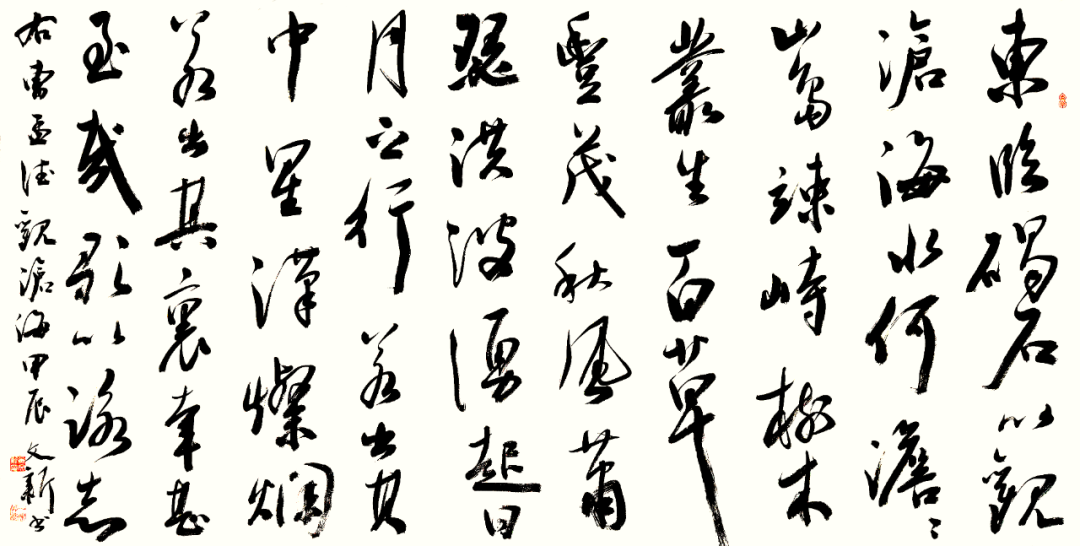 東臨碣石以觀
滄海水何澹〻
山島竦峙樹木
叢生百草
豐茂秋風蕭
瑟洪波湧起日
月之行若出其
中星漢燦爛
若出其裏幸甚
至哉歌以詠志
右曹孟德觀滄海甲辰文新書